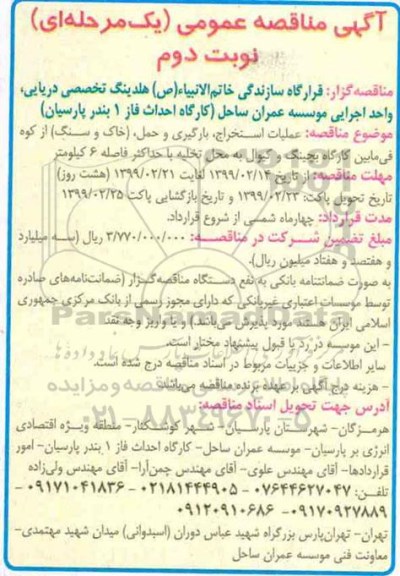 آگهی مناقصه عمومی (یک‌مرحله‌ای)
نوبت دوم
مناقصه‌گزار: قرارگاه سازندگی خاتم‌الانبیاء(ص) هلدینگ تخصصی دریایی،
واحد اجرایی موسسه عمران ساحل (کارگاه احداث فاز ۱ بندر پارسیان)
موضوع مناقصه: عملیات استخراج، بارگیری و حمل، (خاک و سنگ) از کوه
فی‌مابین کارگاه بچینگ و کیوال به محل تخلیه با حداکثر فاصله ۶ کیلومتر
مهلت مناقصه: از تاریخ ۱۳۹۹/۰۲/۱۴ لغایت ۱۳۹۹/۰۲/۲۱ (هشت روز)
تاریخ تحویل پاکت: ۱۳۹۹/۰۲/۲۳ و تاریخ بازگشایی پاکت ۱۳۹۹/۰۲/۲۵
مدت قرارداد: چهارماه شمسی از شروع قرارداد.
مبلغ تضمین شرکت در مناقصه: ۳/۷۷۰/۰۰۰/۰۰۰ ریال (سه میلیارد
و هفتصد و هفتاد میلیون ریال).
به صورت ضمانتنامه بانکی به نفع دستگاه مناقصه‌گزار (ضمانت‌نامه‌های صادره
توسط موسسات اعتباری غیربانکی که دارای مجوز رسمی از بانک مرکزی جمهوری
اسلامی ایران هستند مورد پذیرش می‌باشد) و یا واریز وجه نقد
- این موسسه در رد یا قبول پیشنهاد مختار است.
- سایر اطلاعات و جزییات مربوط در اسناد مناقصه درج شده است.
- هزینه درج آگهی بر عهده برنده مناقصه می‌باشد.
آدرس جهت تحویل اسناد مناقصه:
هرمزگان- شهرستان پارسیان- شهر کوشکنار- منطقه ویژه اقتصادی
انرژی بر پارسیان- موسسه عمران ساحل- کارگاه احداث فاز ۱ بندر پارسیان- امور
قراردادها- آقای مهندس علوی- آقای مهندس چمن‌آرا- آقای مهندس ولی‌زاده
تلفن: ۰۷۶۴۴۶۲۷۰۴۷ - ۰۲۱۸۱۴۴۴۹۰۵ - ۰۹۱۷۱۰۴۱۸۳۶ -
۰۹۱۷۰۹۲۷۸۸۹ - ۰۹۱۲۰۹۱۰۶۸۶
تهران- تهران‌پارس بزرگراه شهید عباس دوران (اسبدوانی) میدان شهید مهتمدی-
معاونت فنی موسسه عمران ساحل
ParsNamadData
۰۲۱-۸۸۳۴۹۶۷۰-۵